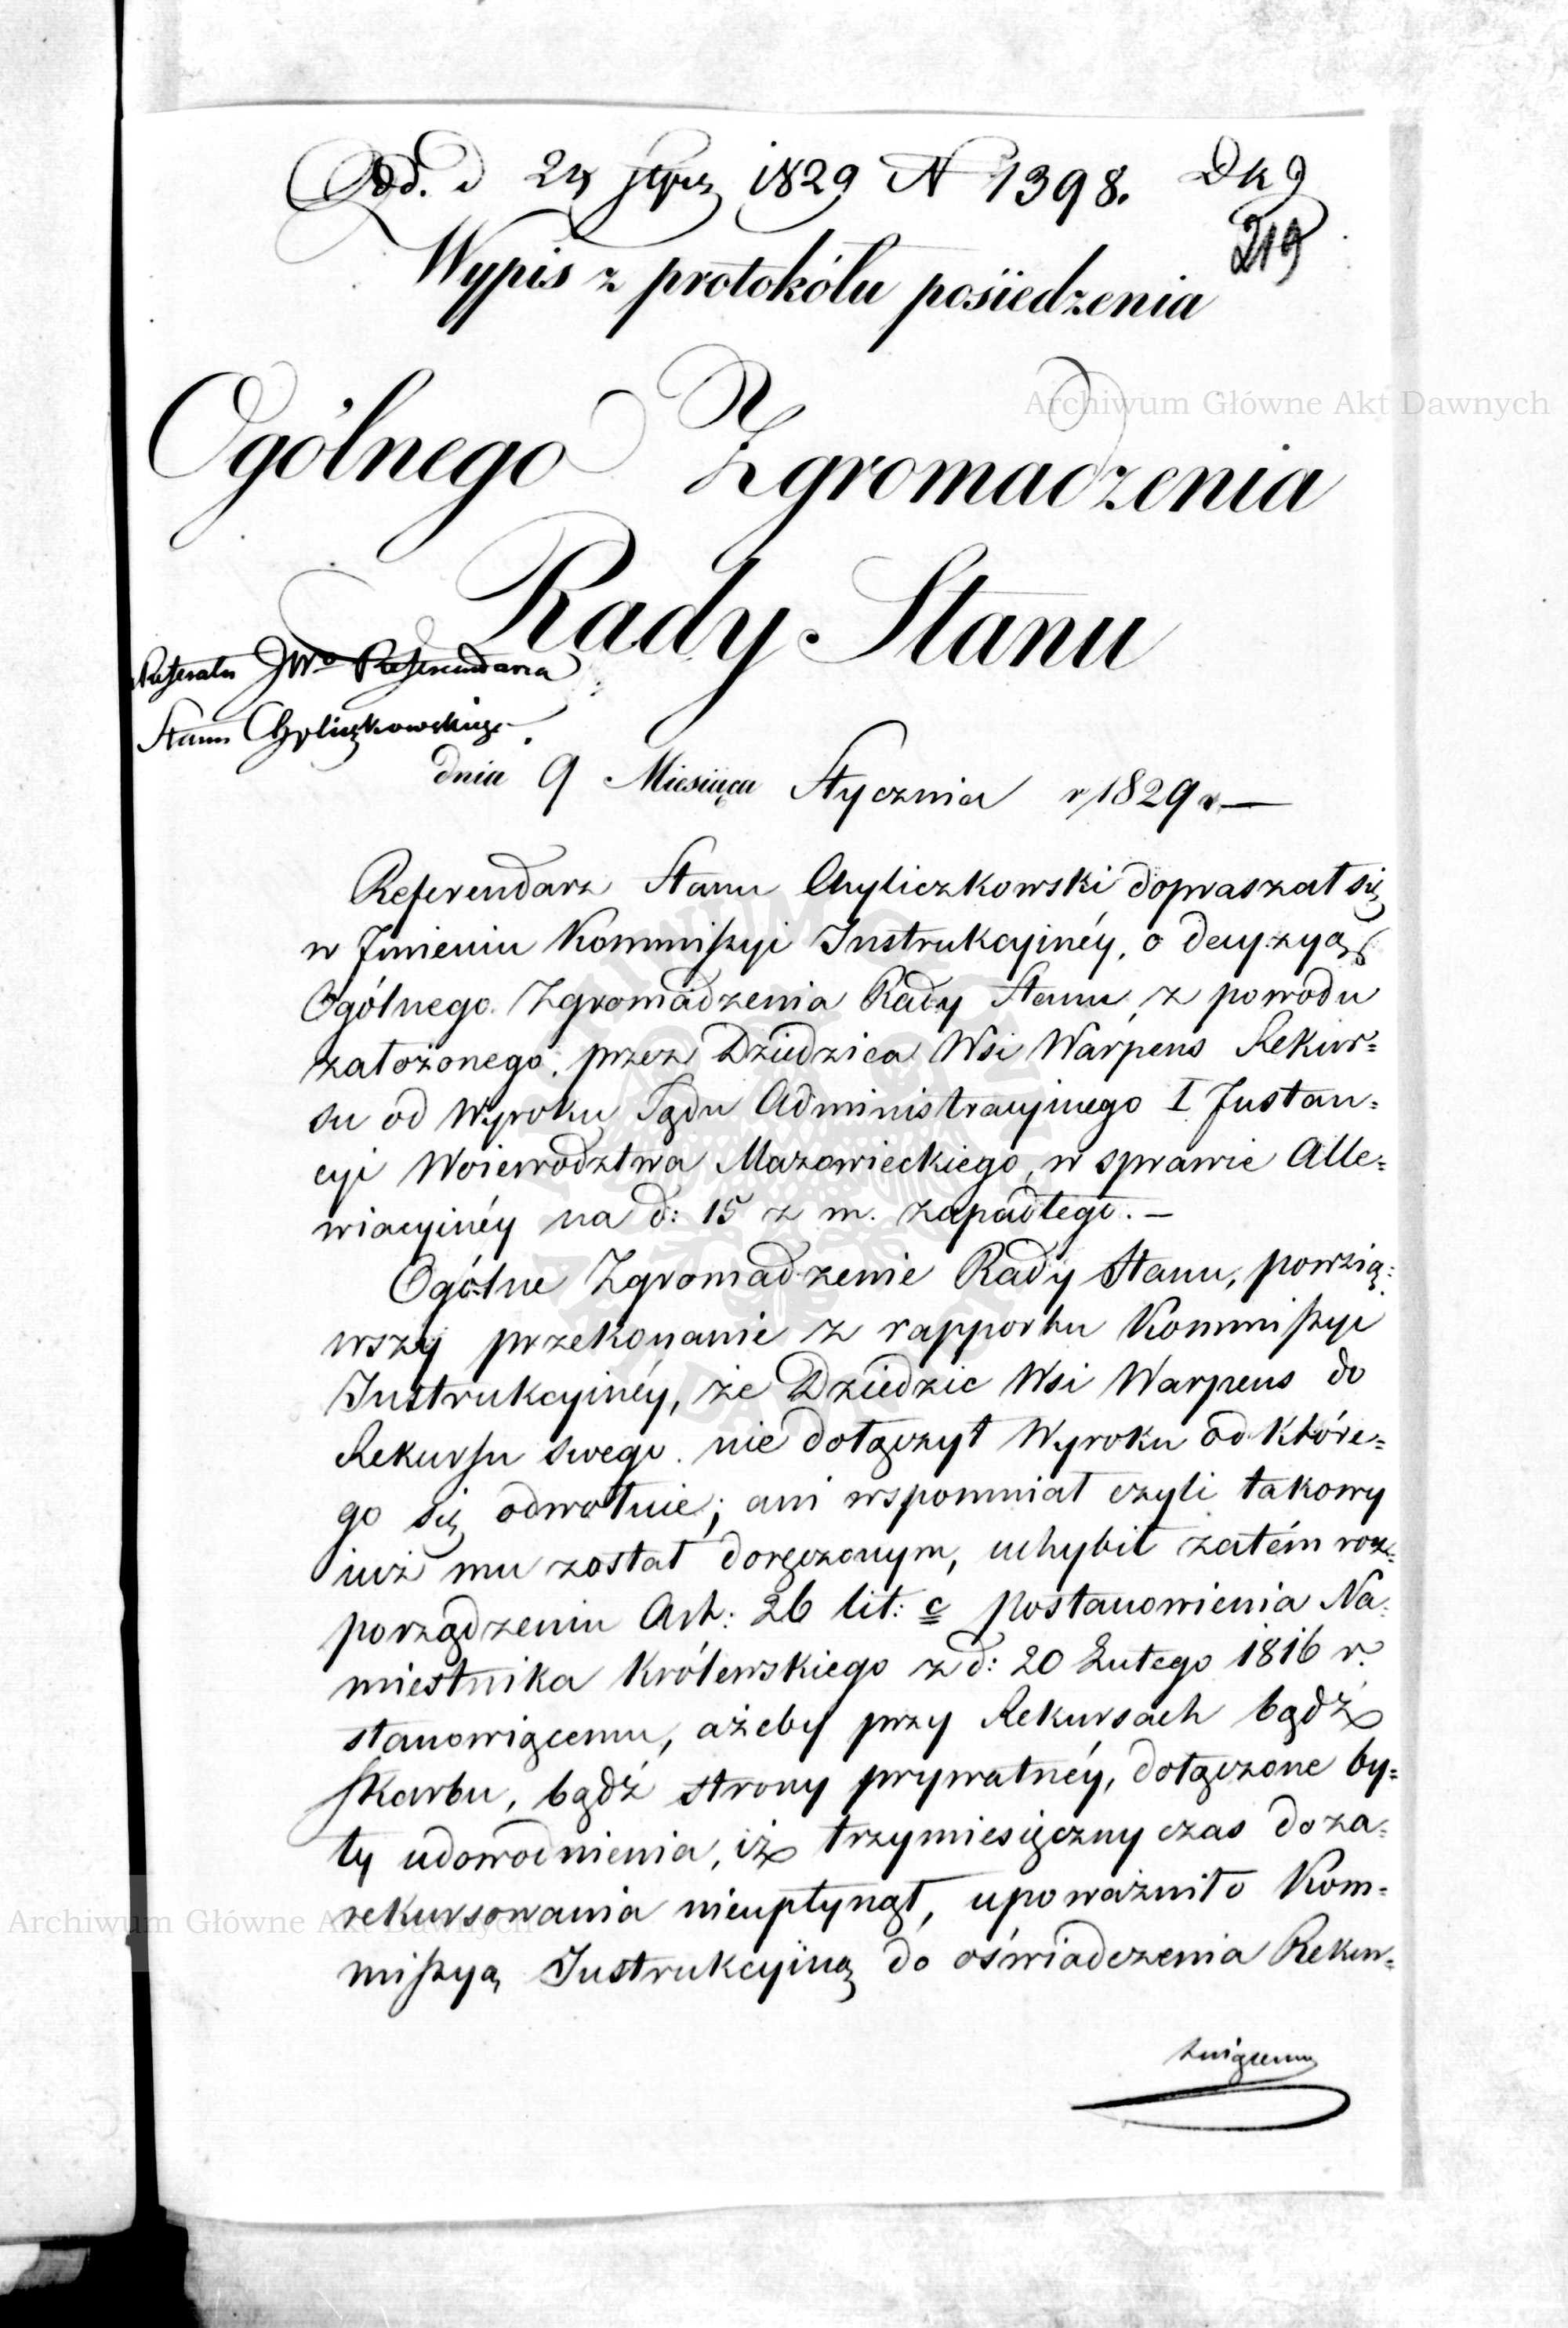 Odd. d 24 1829 N 1398. Dk 9
219
Wypis z protokółu posiedzenia
Ogólnego Zgromadzenia
Rady Stanu
Referatu JWo Referendarza
Stanu Chyliczkowskiego.
dnia 9 Miesiąca Stycznia r 1829 r —
Referendarz Stanu Chyliczkowski dopraszał się
w Jmieniu Kommissyi Instrukcyinéy, o decyzyą
Ogólnego Zgromadzenia Rady Stanu, z powodu
założonego, przez Dziedzica Wsi Warpens Rekur=
su od Wyroku Sądu Administracyinego I Instan=
cyi Woiewodztwa Mazowieckiego, w sprawie Alle=
wiacyinéy na d: 15 z m. zapadłego. —
Ogólne Zgromadzenie Rady Stanu, powzią=
wszy przekonanie z rapportu Kommissyi
Instrukcyinéy, że Dziedzic Wsi Warpens do
Rekursu swego nie dołączył Wyroku od które=
go się odwołuie; ani wspomniał czyli takowy
iuż mu został doręczonym, uchybił zatém roz=
porządzeniu Art: 26 lit: c postanowienia Na=
miestnika Królewskiego z d: 20 Lutego 1816 r.
stanowiącemu, ażeby przy Rekursach bądź
Skarbu, bądź strony prywatnéy, dołączone by=
ły udowodnienia, iż trzymiesięczny czas do za=
rekursowania nieupłynął, upoważniło Kom=
missyą Instrukcyiną do oświadczenia Rekur=
Archiwum Główne Akt Dawnych
Archiwum Główne Akt Dawnych